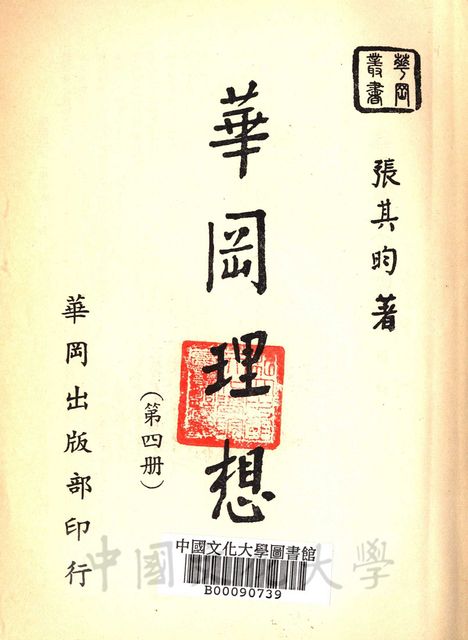 華岡
叢書
張其昀著
華岡理想
（第四册）
華岡出版部印行
中國文化大學圖書館
B00090739
中國文化大學